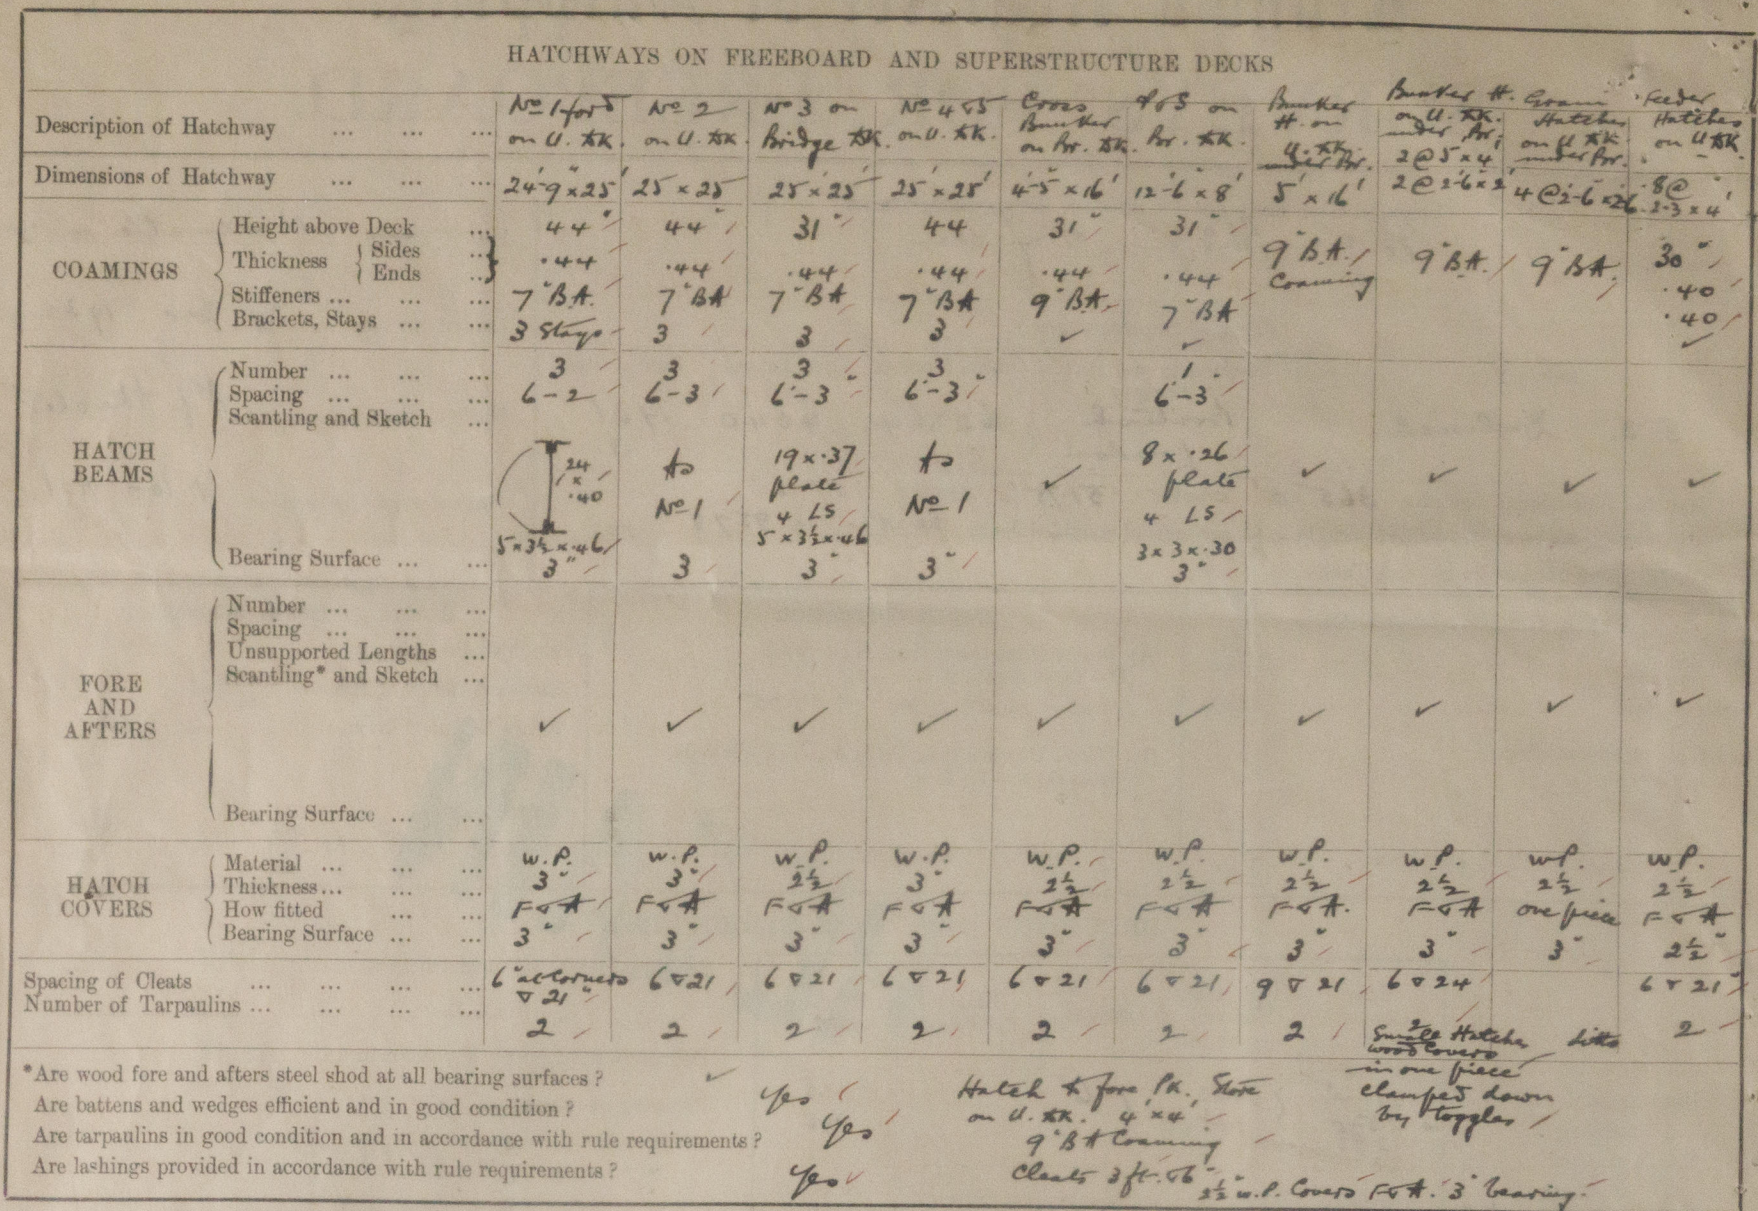 HATCHWAYS ON FREEBOARD AND SUPERSTRUCTURE DECKS
Description of Hatchway ... ... ... No 1 ford on U. DK. No 2 on U. DK. No 3 on Bridge DK. No 4 & 5 on U. DK. Cross Bunker on Br. DK. P & S on Br. DK. Bunker H. on U. DK. under Br. Bunker H. on U. DK. under Br. Grain Hatches on U DK under Br. Feeder Hatches on U DK
Dimensions of Hatchway ... ... ... 24'-9" x 25' 25 x 25 25' x 25' 25' x 25' 4'-5" x 16' 12'-6" x 8' 5' x 16' 2 @ 5' x 4' 2 @ 2'-6" x 2' 4 @ 2'-6" x 2'6 8 @ 2-3 x 4'
COAMINGS
Height above Deck ... 44" 44" 31" 44 31" 31" 9" BA. Coaming 9" BA. 9" BA. 30"
Thickness { Sides ... Ends ... .44 .44 .44 .44 .44 .44 .40
Stiffeners ... ... ... 7" BA. 7" BA 7" BA 7" BA 9" BA. 7" BA .40
Brackets, Stays ... ... 3 Stays 3 3 3 ✓ ✓ ✓
HATCH BEAMS
Number ... ... ... 3 3 3 3 1
Spacing ... ... ... 6-2 6-3 6'-3" 6'-3" 6'-3"
Scantling and Sketch ... 24 x .40 5 x 3½ x .46 As No 1 19 x .37 plate 4 LS 5 x 3½ x .46 As No 1 ✓ 8 x .26 plate 4 LS 3 x 3 x .30 ✓ ✓ ✓ ✓
Bearing Surface ... ... 3" 3 3" 3" 3"
FORE AND AFTERS
Number ... ... ...
Spacing ... ... ...
Unsupported Lengths ...
Scantling* and Sketch ...
✓ ✓ ✓ ✓ ✓ ✓ ✓ ✓ ✓ ✓
Bearing Surface ... ...
HATCH COVERS
Material ... ... ... W.P. W.P. W.P. W.P. W.P. W.P. W.P. W.P. W.P. W.P.
Thickness... ... ... 3" 3" 2½ 3" 2½ 2½ 2½ 2½ 2½ 2½
How fitted ... ... F & A F & A F & A F & A F & A F & A F & A. F & A one piece F & A
Bearing Surface ... ... 3" 3" 3" 3" 3" 3" 3" 3" 3" 2½"
Spacing of Cleats ... ... ... ... 6" at Corners & 21" 6 & 21 6 & 21 6 & 21 6 & 21 6 & 21 9 & 21 6 & 24 6 & 21
Number of Tarpaulins ... ... ... ... 2 2 2 2 2 2 2 2 ditto 2
Small Hatches
wood Covers
in one piece
clamped down
by toggles
*Are wood fore and afters steel shod at all bearing surfaces ? ✓
Are battens and wedges efficient and in good condition ? Yes
Are tarpaulins in good condition and in accordance with rule requirements ? Yes
Are lashings provided in accordance with rule requirements ? Yes
Hatch to fore Pk. Store
on U. DK. 4' x 4'
9" BA Coaming
Cleats 3 ft. & 6"
2½" W.P. Covers F & A. 3" bearing.